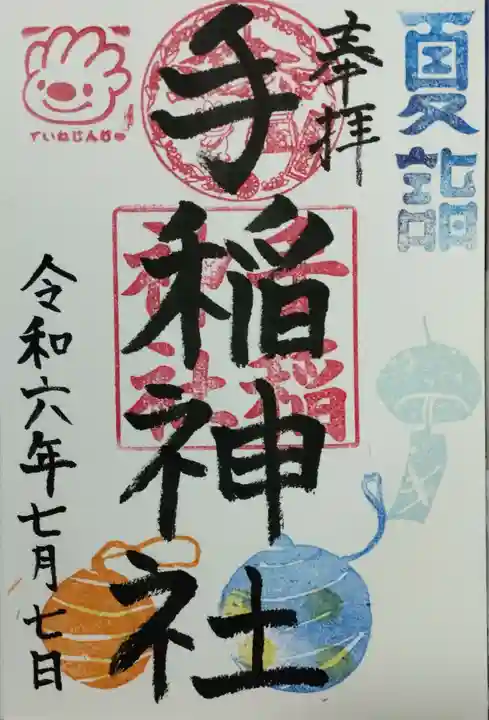 夏詣
奉拝
手稲神社
手稲神社
ていねじんじゃ
令和六年七月七日